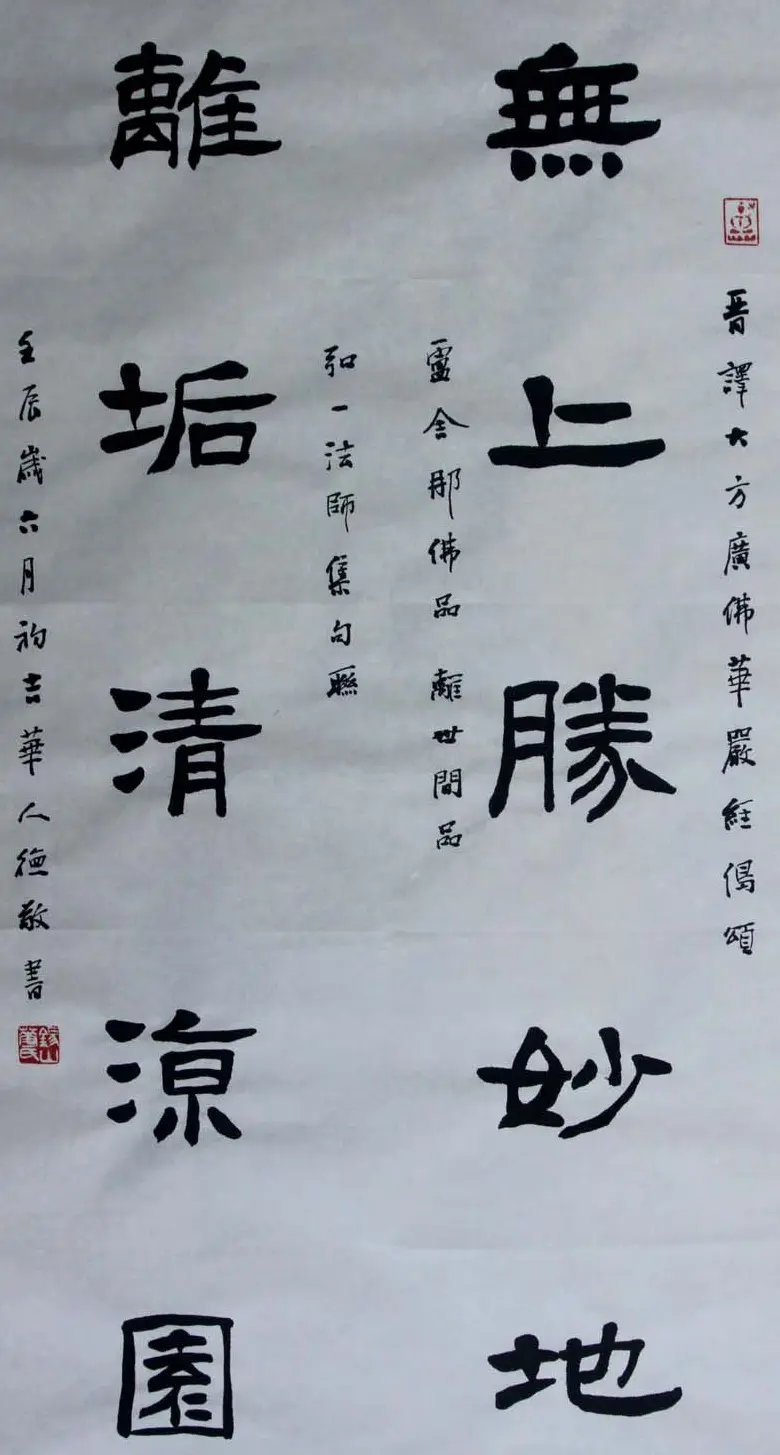 晋譯大方廣佛華嚴經偈頌
無上勝妙地
盧舍那佛品 離世間品
弘一法師集句聯
離垢清涼園
壬辰歲六月初吉華人德敬書
錫山華氏